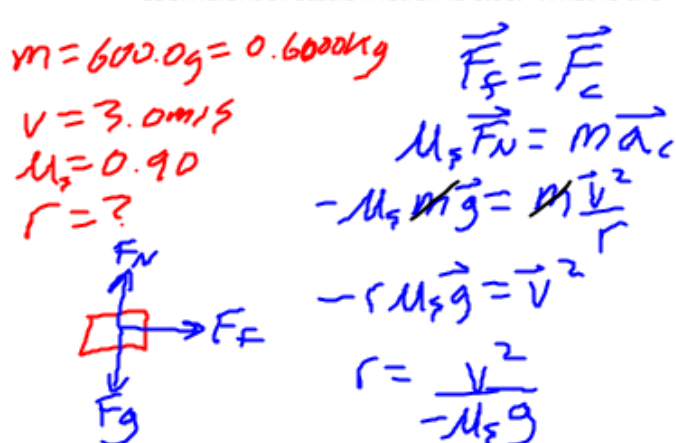 m = 600.0g = 0.6000kg
v = 3.0m/s
μₛ = 0.90
r = ?
F_N
F_F
F_g
F⃗_f = F⃗_c
μₛF⃗_N = ma⃗_c
-μₛmg⃗ = mv⃗²/r
-rμₛg⃗ = v⃗²
r = v²/-μₛg